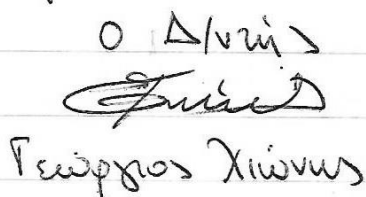 Ο Δ/ντής
Γεώργιος Χιώνης